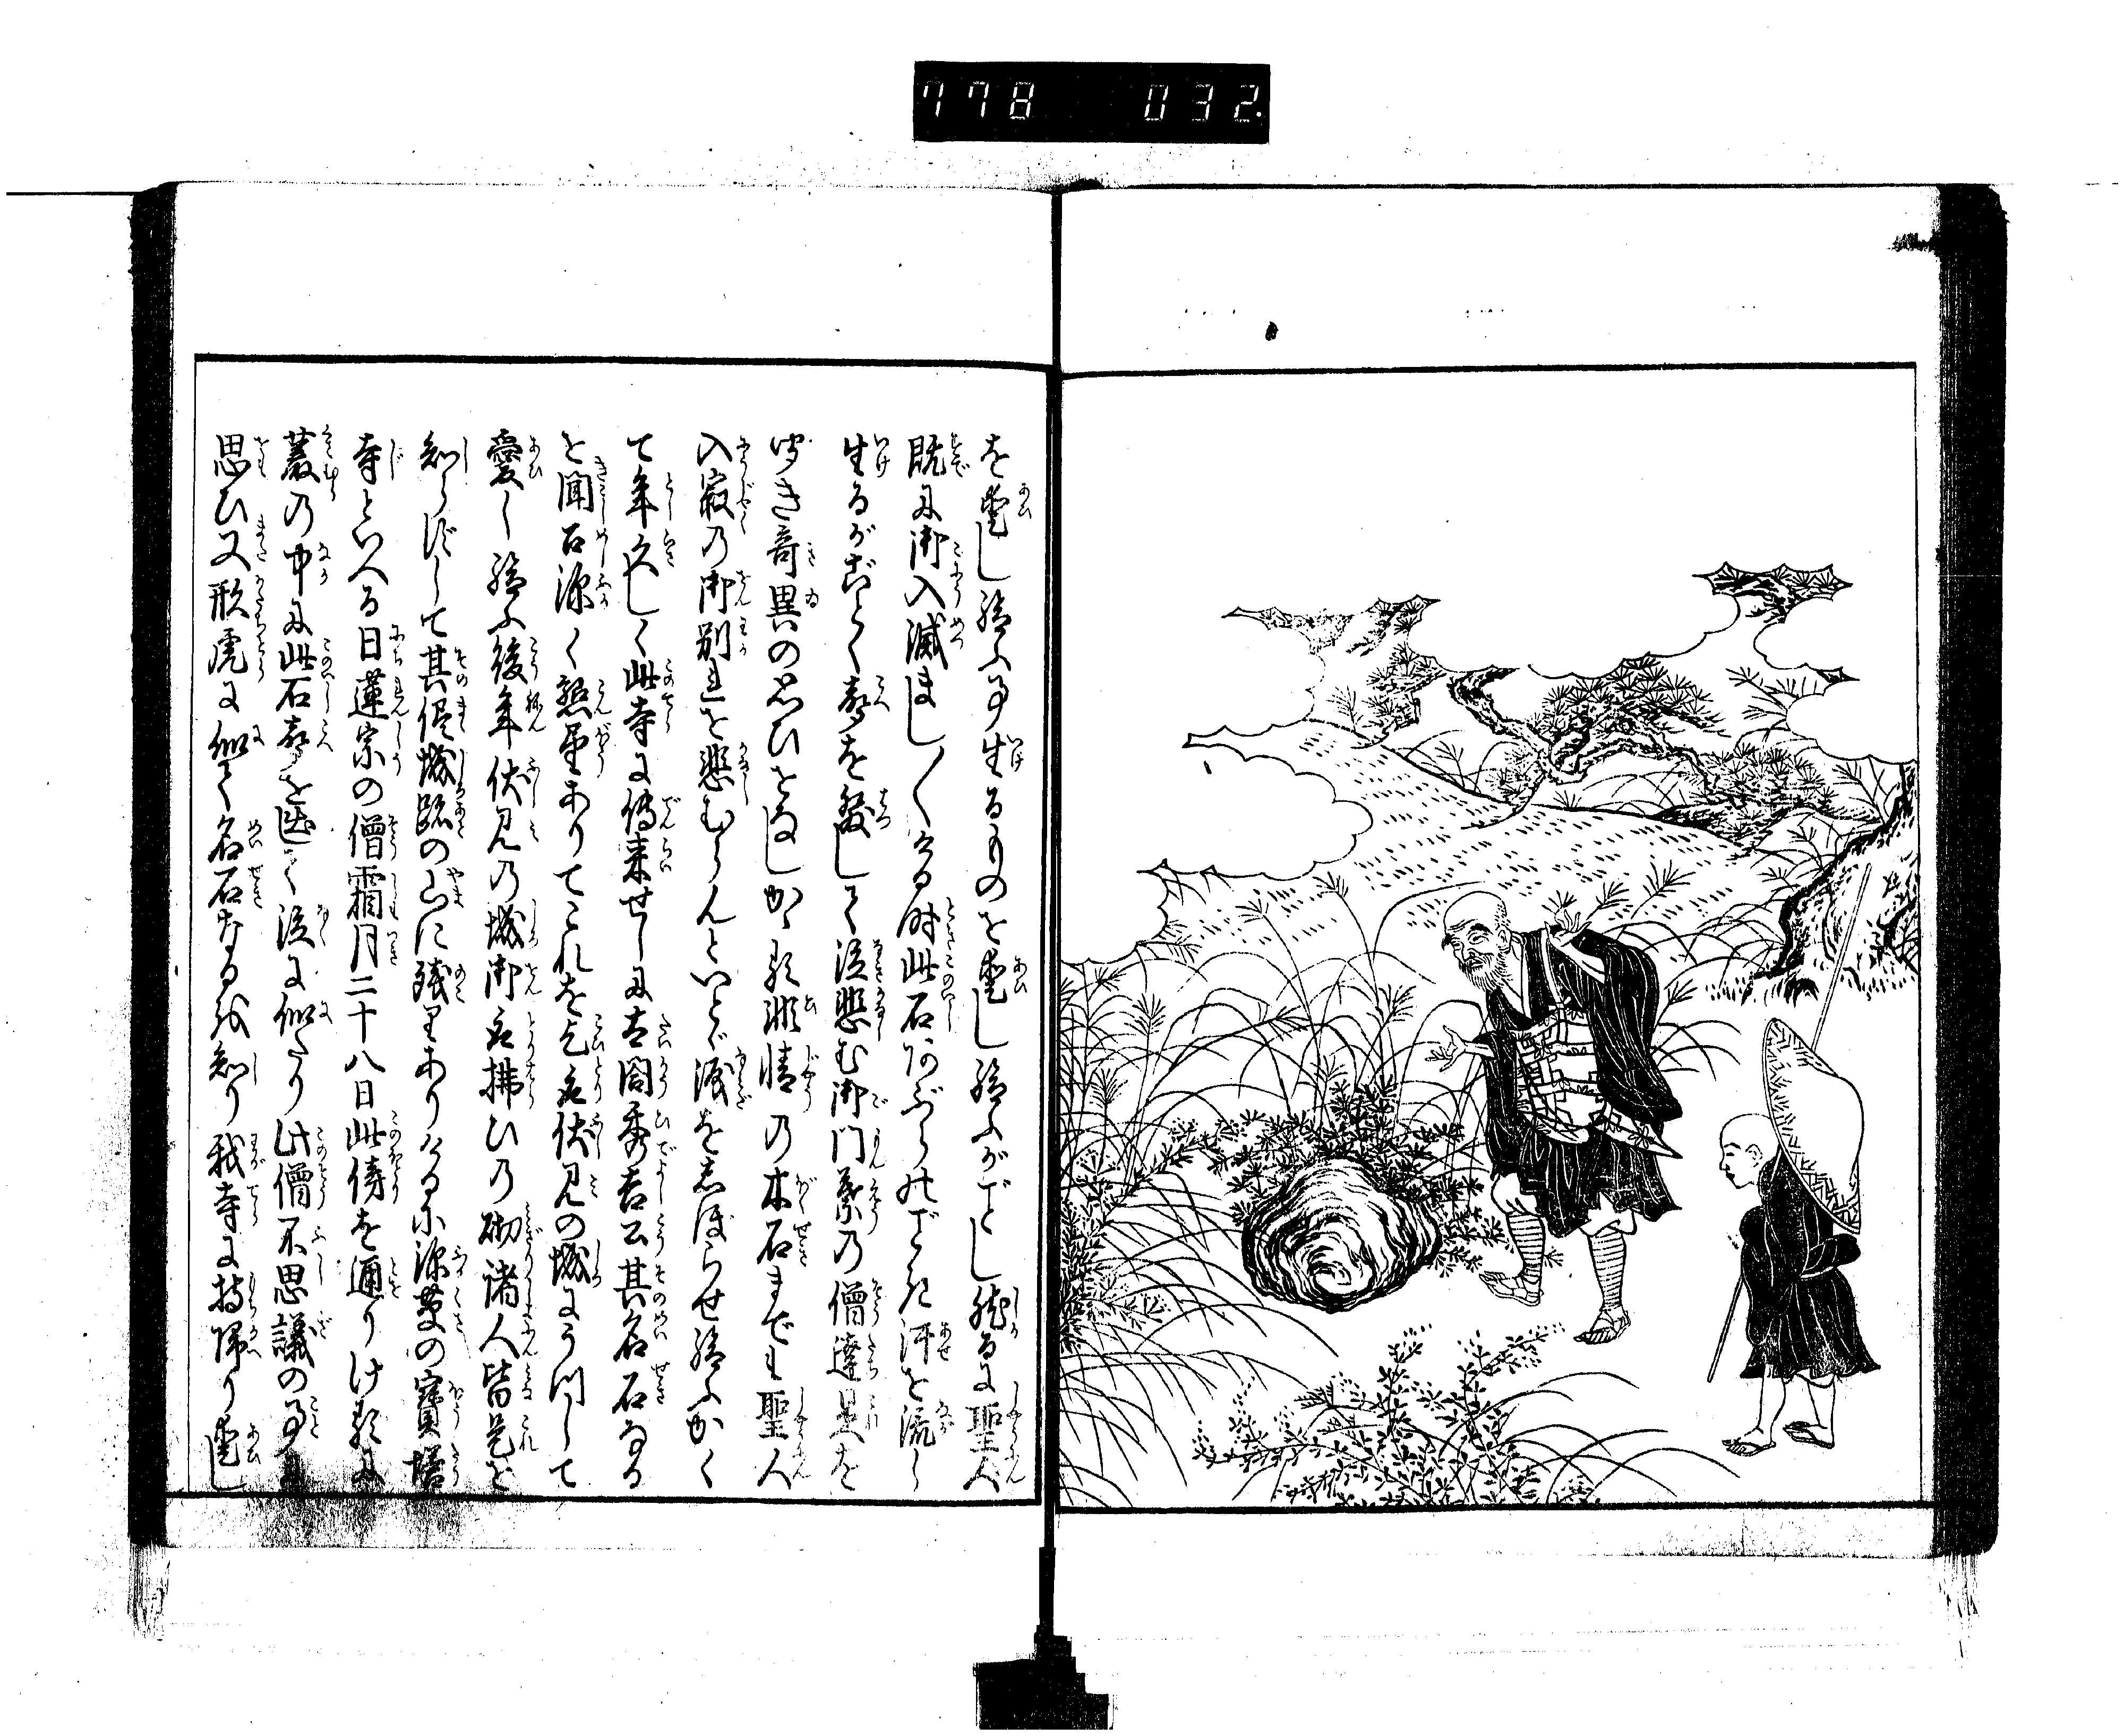 778 032.
を愛し給ふ事生るものを愛し給ふがごとし然るに聖人
既に御入滅まし〱ける時此石あぶらのごとき汗を流し
生るがごとく声を発して泣悲む御門葉の僧達是を
きき奇異の思ひをなしかゝる非情の木石までも聖人
入寂の御別れを悲むらんといとゞ涙をしぼらせ給ふかく
て年久しく此寺に伝来せしに太閤秀吉公其名石なる
を聞召深く懇望ありてこれを乞取伏見の城にうつして
愛し給ふ後年伏見の城御取払ひの砌諸人皆是を
知らずして其侭城跡の山に残りありけるに深草の寳塔
寺といへる日蓮宗の僧霜月二十八日此傍を通りけるに
叢の中に此石声を出して泣に似たり此僧不思議の事に
思ひ又形虎に似て名石なるを知り我寺に持帰り愛し